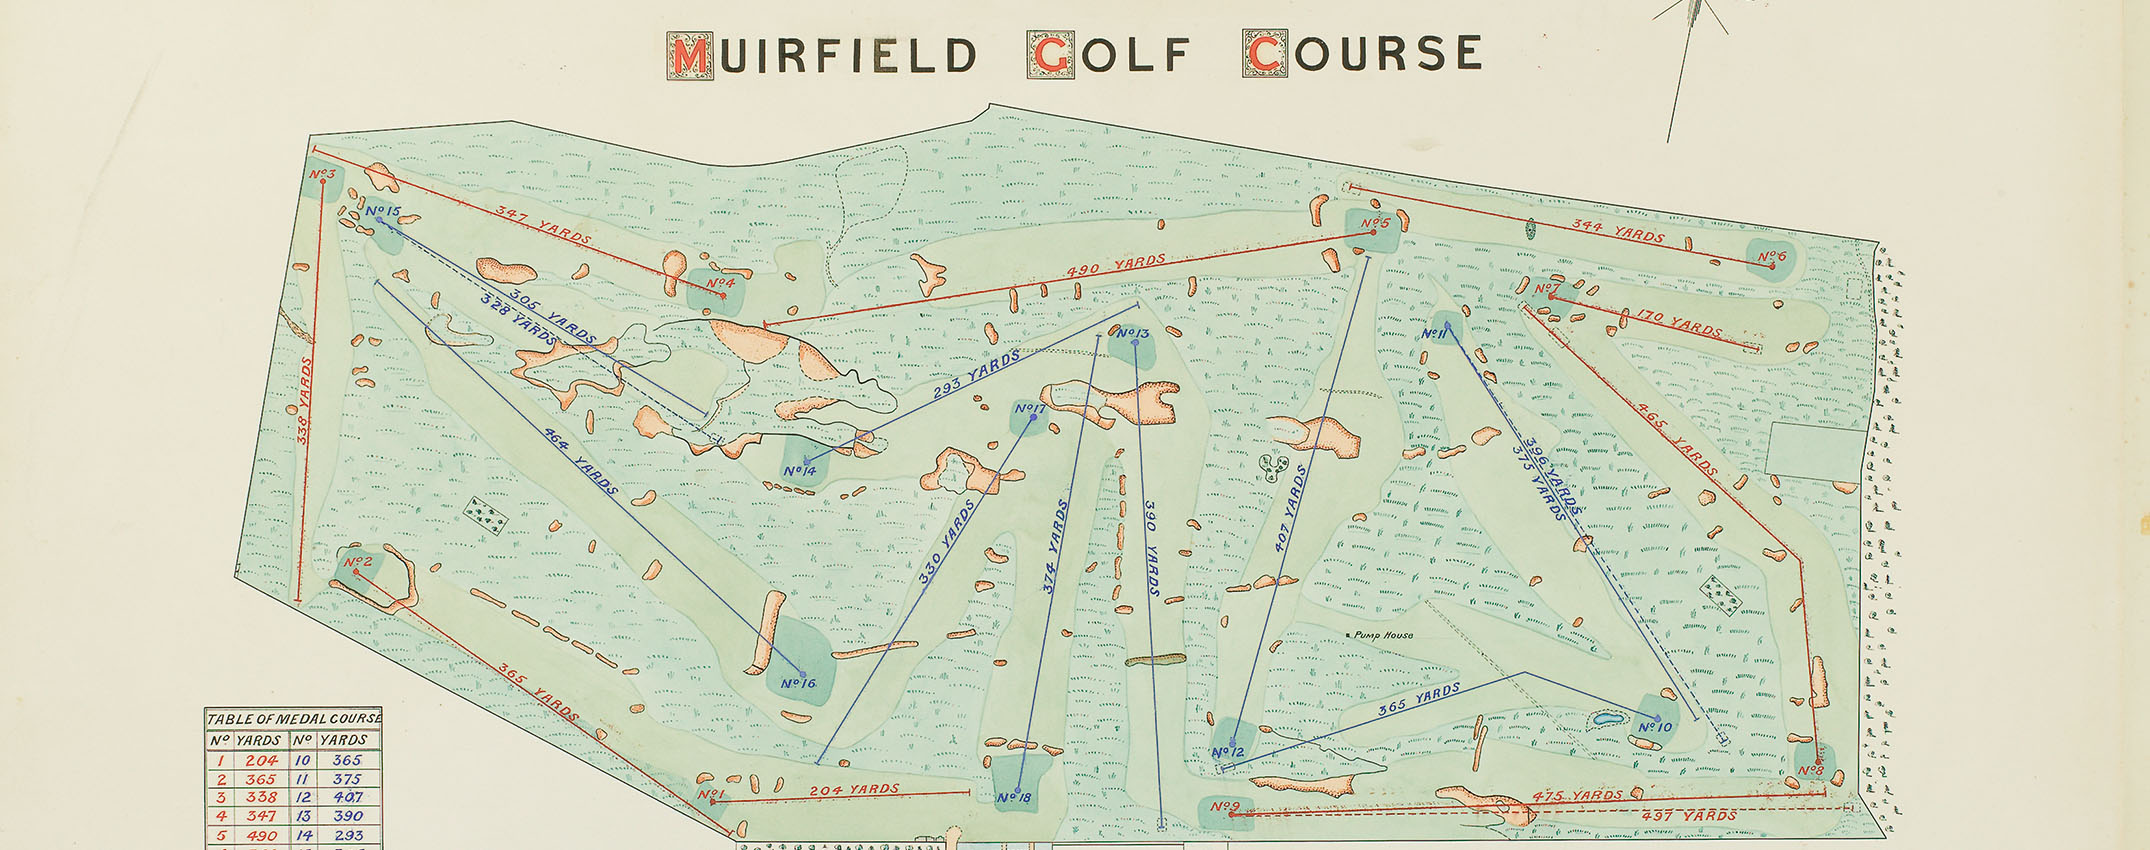 MUIRFIELD GOLF COURSE
No 3
No 15
347 YARDS
No 4
490 YARDS
No 5
344 YARDS
No 6
No 7
170 YARDS
305 YARDS
328 YARDS
No 13
No 11
293 YARDS
338 YARDS
No 17
465 YARDS
464 YARDS
No 14
396 YARDS
375 YARDS
407 YARDS
330 YARDS
374 YARDS
390 YARDS
No 2
Pump House
365 YARDS
No 16
365 YARDS
No 10
No 12
No 8
No 1
204 YARDS
No 18
No 9
475 YARDS
497 YARDS
TABLE OF MEDAL COURSE
No YARDS No YARDS
1 204 10 365
2 365 11 375
3 338 12 407
4 347 13 390
5 490 14 293